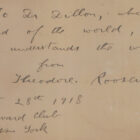 To Dr Dillon, who
of the world,
understands the w
from
Theodore Roosev
28th 1918